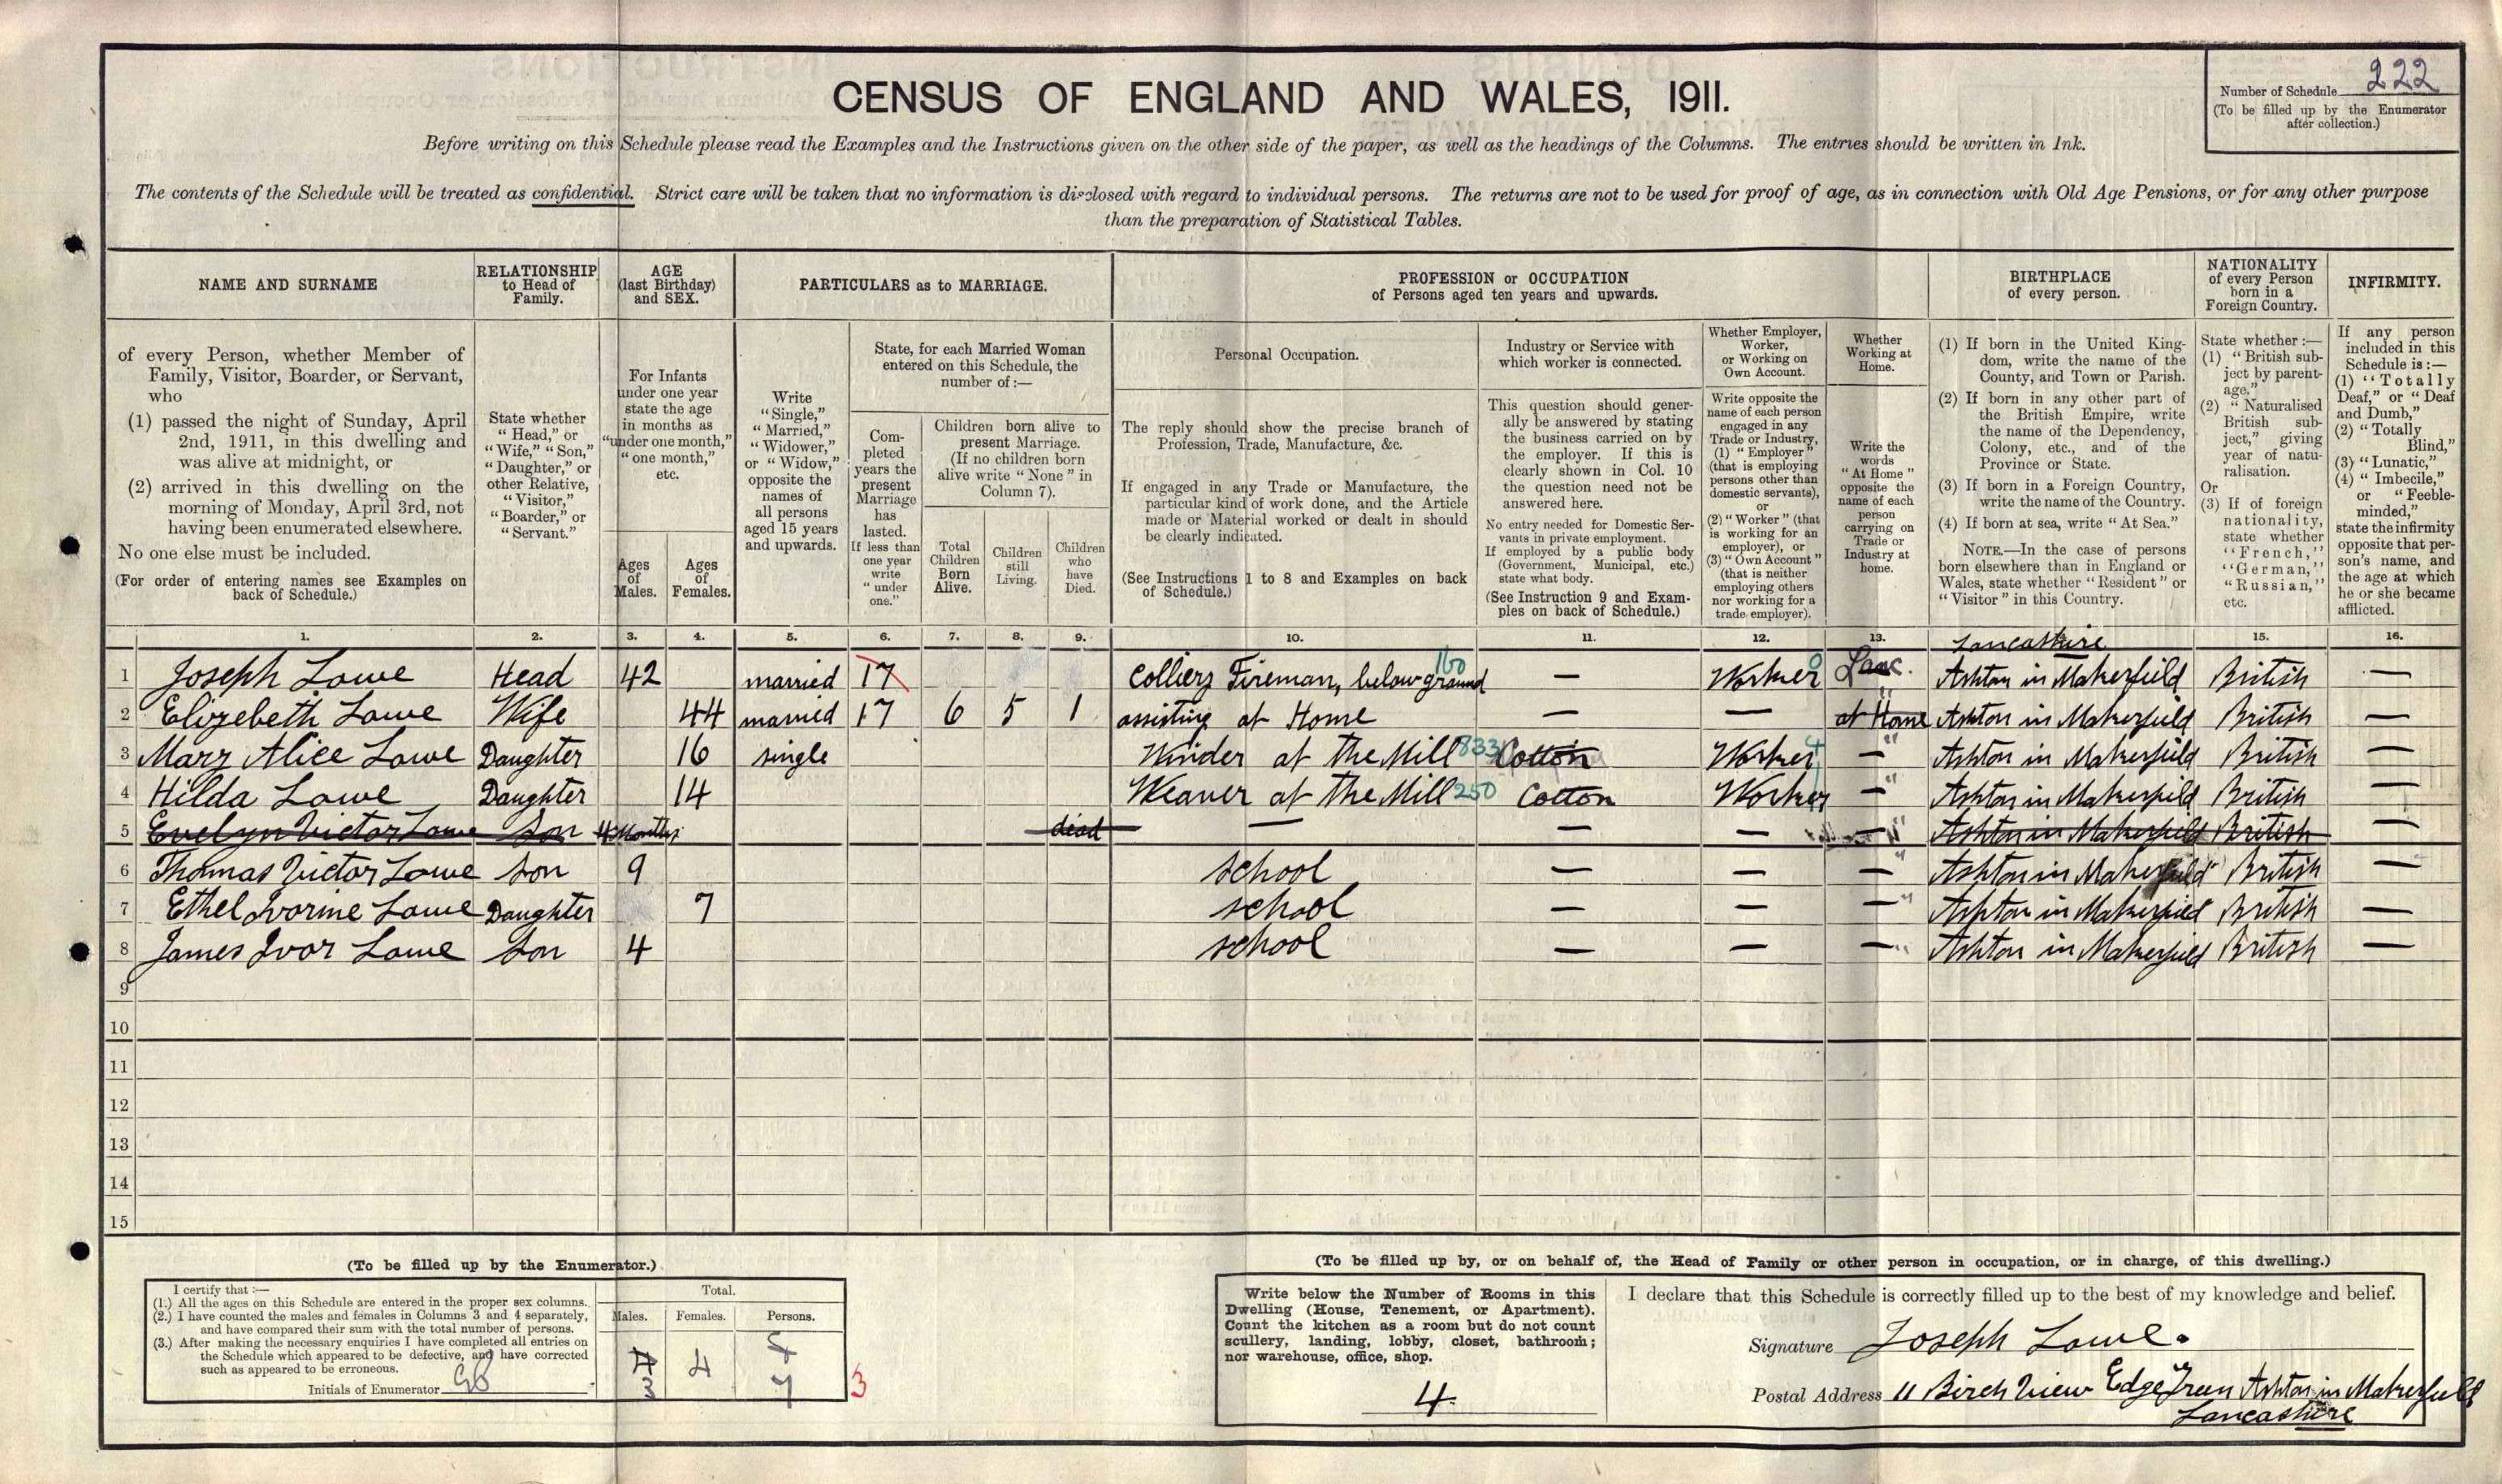 CENSUS OF ENGLAND AND WALES, 1911.
Number of Schedule 222
(To be filled up by the Enumerator
after collection.)
Before writing on this Schedule please read the Examples and the Instructions given on the other side of the paper, as well as the headings of the Columns. The entries should be written in Ink.
The contents of the Schedule will be treated as confidential. Strict care will be taken that no information is disclosed with regard to individual persons. The returns are not to be used for proof of age, as in connection with Old Age Pensions, or for any other purpose
than the preparation of Statistical Tables.
NAME AND SURNAME
of every Person, whether Member of
Family, Visitor, Boarder, or Servant,
who
(1) passed the night of Sunday, April
2nd, 1911, in this dwelling and
was alive at midnight, or
(2) arrived in this dwelling on the
morning of Monday, April 3rd, not
having been enumerated elsewhere.
No one else must be included.
(For order of entering names see Examples on
back of Schedule.)
RELATIONSHIP
to Head of
Family.
State whether
"Head," or
"Wife," "Son,"
"Daughter," or
other Relative,
"Visitor,"
"Boarder," or
"Servant."
AGE
(last Birthday)
and SEX.
For Infants
under one year
state the age
in months as
"under one month,"
"one month,"
etc.
Ages
of
Males.
Ages
of
Females.
PARTICULARS as to MARRIAGE.
Write
"Single,"
"Married,"
"Widower,"
or "Widow,"
opposite the
names of
all persons
aged 15 years
and upwards.
State, for each Married Woman
entered on this Schedule, the
number of:—
Com-
pleted
years the
present
Marriage
has
lasted.
If less than
one year
write
"under
one."
Children born alive to
present Marriage.
(If no children born
alive write "None" in
Column 7).
Total
Children
Born
Alive.
Children
still
Living.
Children
who
have
Died.
PROFESSION or OCCUPATION
of Persons aged ten years and upwards.
Personal Occupation.
The reply should show the precise branch of
Profession, Trade, Manufacture, &c.
If engaged in any Trade or Manufacture, the
particular kind of work done, and the Article
made or Material worked or dealt in should
be clearly indicated.
(See Instructions 1 to 8 and Examples on back
of Schedule.)
Industry or Service with
which worker is connected.
This question should gener-
ally be answered by stating
the business carried on by
the employer. If this is
clearly shown in Col. 10
the question need not be
answered here.
No entry needed for Domestic Ser-
vants in private employment.
If employed by a public body
(Government, Municipal, etc.)
state what body.
(See Instruction 9 and Exam-
ples on back of Schedule.)
Whether Employer,
Worker,
or Working on
Own Account.
Write opposite the
name of each person
engaged in any
Trade or Industry,
(1) "Employer"
(that is employing
persons other than
domestic servants),
or
(2) "Worker" (that
is working for an
employer), or
(3) "Own Account"
(that is neither
employing others
nor working for a
trade employer).
Whether
Working at
Home.
Write the
words
"At Home"
opposite the
name of each
person
carrying on
Trade or
Industry at
home.
BIRTHPLACE
of every person.
(1) If born in the United King-
dom, write the name of the
County, and Town or Parish.
(2) If born in any other part of
the British Empire, write
the name of the Dependency,
Colony, etc., and of the
Province or State.
(3) If born in a Foreign Country,
write the name of the Country.
(4) If born at sea, write "At Sea."
NOTE.—In the case of persons
born elsewhere than in England or
Wales, state whether "Resident" or
"Visitor" in this Country.
NATIONALITY
of every Person
born in a
Foreign Country.
State whether:—
(1) "British sub-
ject by parent-
age."
(2) "Naturalised
British sub-
ject," giving
year of natu-
ralisation.
Or
(3) If of foreign
nationality,
state whether
"French,"
"German,"
"Russian,"
etc.
INFIRMITY.
If any person
included in this
Schedule is:—
(1) "Totally
Deaf," or "Deaf
and Dumb,"
(2) "Totally
Blind,"
(3) "Lunatic,"
(4) "Imbecile,"
or "Feeble-
minded,"
state the infirmity
opposite that per-
son's name, and
the age at which
he or she became
afflicted.
1. 2. 3. 4. 5. 6. 7. 8. 9. 10. 11. 12. 13. 15. 16.
Lancashire
1 Joseph Lowe Head 42 married 17 Colliery Fireman, below ground 160 — Worker 0 Lanc. Ashton in Makerfield British —
2 Elizebeth Lowe Wife 44 married 17 6 5 1 assisting at Home — — at Home " Ashton in Makerfield British —
3 Mary Alice Lowe Daughter 16 single Winder at the Mill 833 Cotton Worker — " Ashton in Makerfield British —
4 Hilda Lowe Daughter 14 Weaver at the Mill 250 Cotton Worker — " Ashton in Makerfield British —
5 Evelyn Victor Lowe Son 4 Months died — — — — " Ashton in Makerfield British —
6 Thomas Victor Lowe Son 9 school — — — " Ashton in Makerfield British —
7 Ethel Ivorine Lowe Daughter 7 school — — — " Ashton in Makerfield British —
8 James Ivor Lowe Son 4 school — — — " Ashton in Makerfield British —
9
10
11
12
13
14
15
(To be filled up by the Enumerator.)
I certify that:—
(1.) All the ages on this Schedule are entered in the proper sex columns.
(2.) I have counted the males and females in Columns 3 and 4 separately,
and have compared their sum with the total number of persons.
(3.) After making the necessary enquiries I have completed all entries on
the Schedule which appeared to be defective, and have corrected
such as appeared to be erroneous.
Initials of Enumerator
Total.
Males. Females. Persons.
4 4 8
3 7 3
(To be filled up by, or on behalf of, the Head of Family or other person in occupation, or in charge, of this dwelling.)
Write below the Number of Rooms in this
Dwelling (House, Tenement, or Apartment).
Count the kitchen as a room but do not count
scullery, landing, lobby, closet, bathroom;
nor warehouse, office, shop.
4.
I declare that this Schedule is correctly filled up to the best of my knowledge and belief.
Signature Joseph Lowe.
Postal Address 11 Birch View Edge Green Ashton in Makerfield
Lancashire